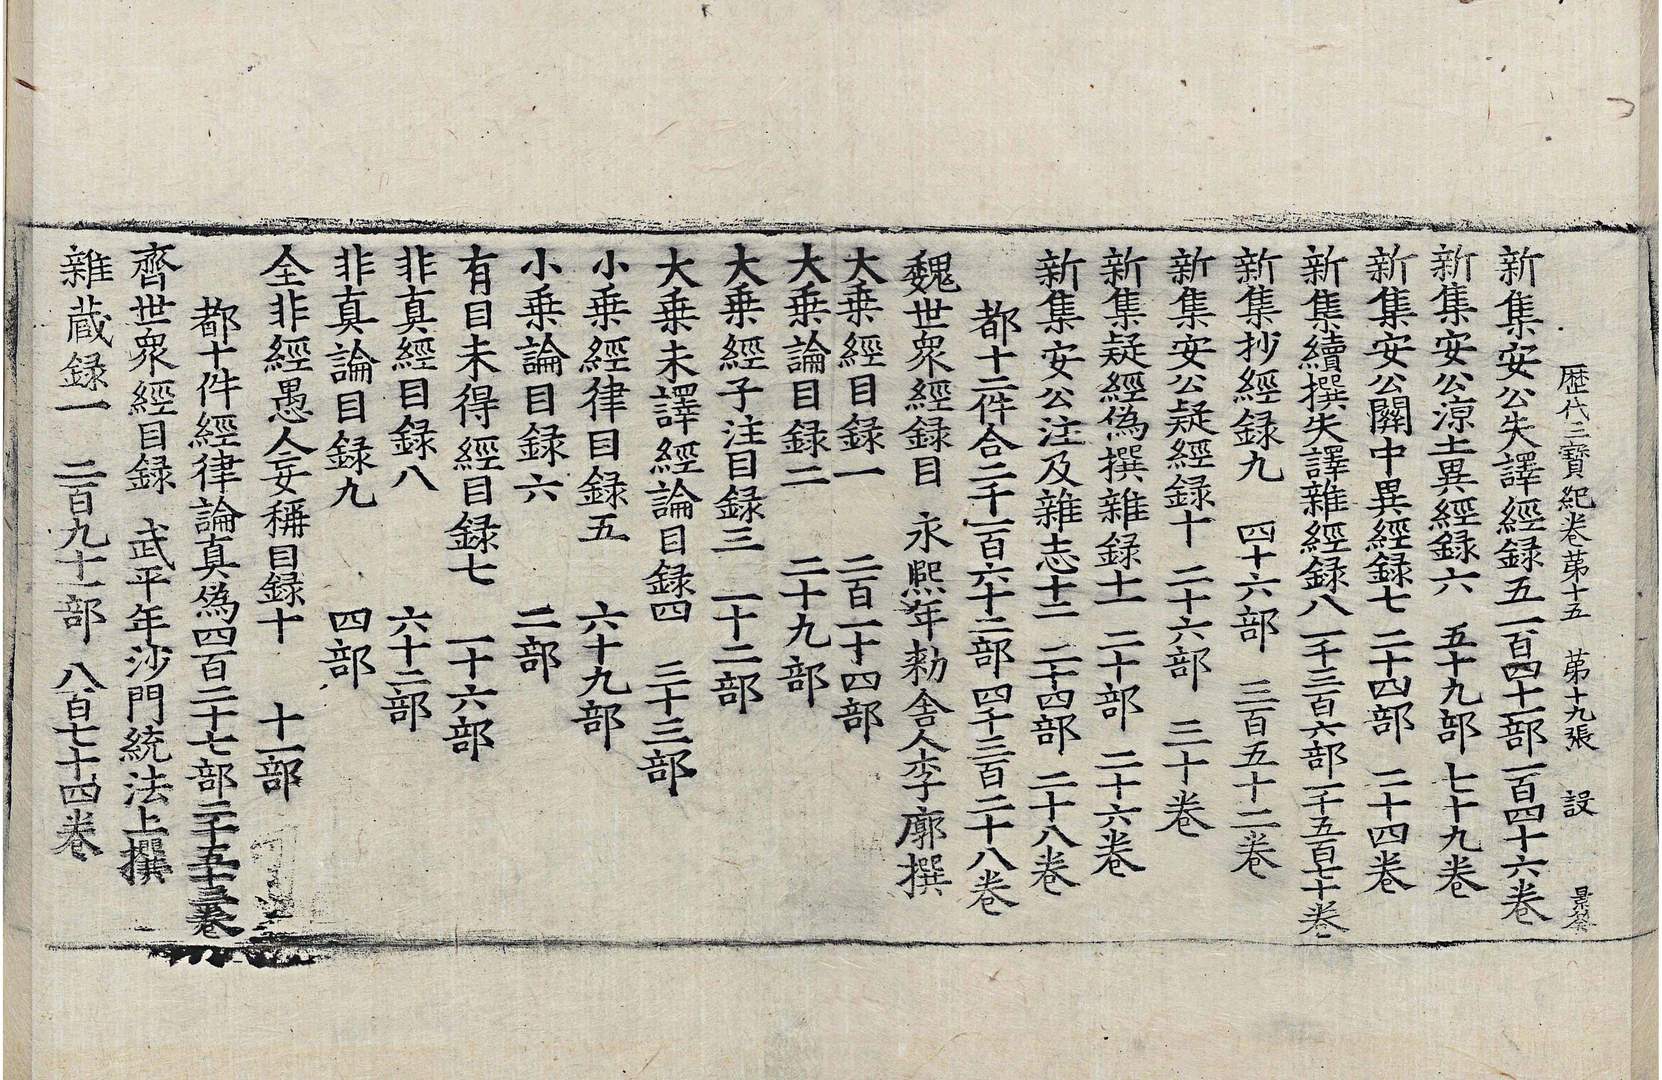 歷代三寶紀卷苐十五　苐十九張　設　景粲
新集安公失譯經録五一百四十一部一百四十六卷
新集安公涼土異經録六　五十九部　七十九卷
新集安公關中異經録七　二十四部　二十四卷
新集續撰失譯雜經録八　一千三百六部一千五百七十卷
新集抄經録九　四十六部　三百五十二卷
新集安公疑經録十　二十六部　三十卷
新集疑經僞撰雜録十一　二十部　二十六卷
新集安公注及雜志十二　二十四部　二十八卷
都十二件合二千一百六十二部四千三百二十八卷
魏世衆經録目　永熙年勑舍人李廓撰
大乗經目録一　二百一十四部
大乗論目録二　二十九部
大乗經子注目録三　一十二部
大乗未譯經論目録四　三十三部
小乗經律目録五　六十九部
小乗論目録六　二部
有目未得經目録七　一十六部
非真經目録八　六十二部
非真論目録九　四部
全非經愚人妄稱目録十　十一部
都十件經律論真僞四百二十七部二千五十三卷
齊世衆經目録　武平年沙門統法上撰
雜蔵録一　二百九十一部　八百七十四卷